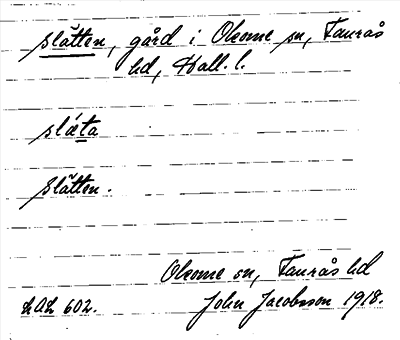 slätten, gård i Okome sn, Faurås
hd, Hall. l.
slǽta
slätten.
Okome sn, Faurås hd
LAL 602. John Jacobsson 1918.